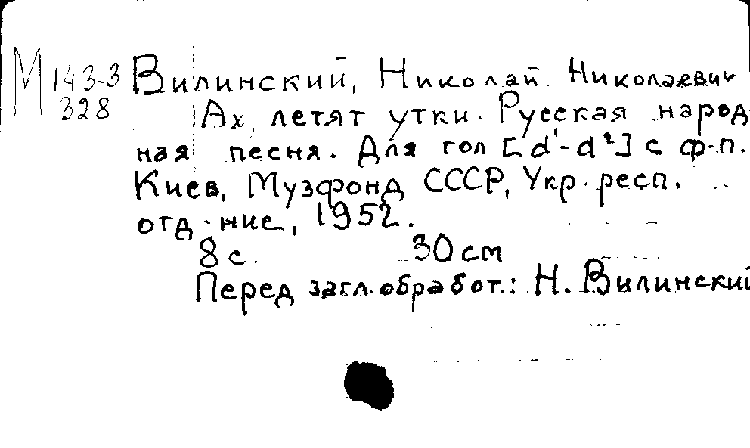 М 143-3 Вилинский, Николай Николаевич
328 Ах, летят утки. Русская народ
ная песня. Для гол [d¹-d²] с ф-п.
Киев, Музфонд СССР, Укр. респ.
отд-ние, 1952.
8 с. 30 см
Перед загл. обработ.: Н. Вилинский